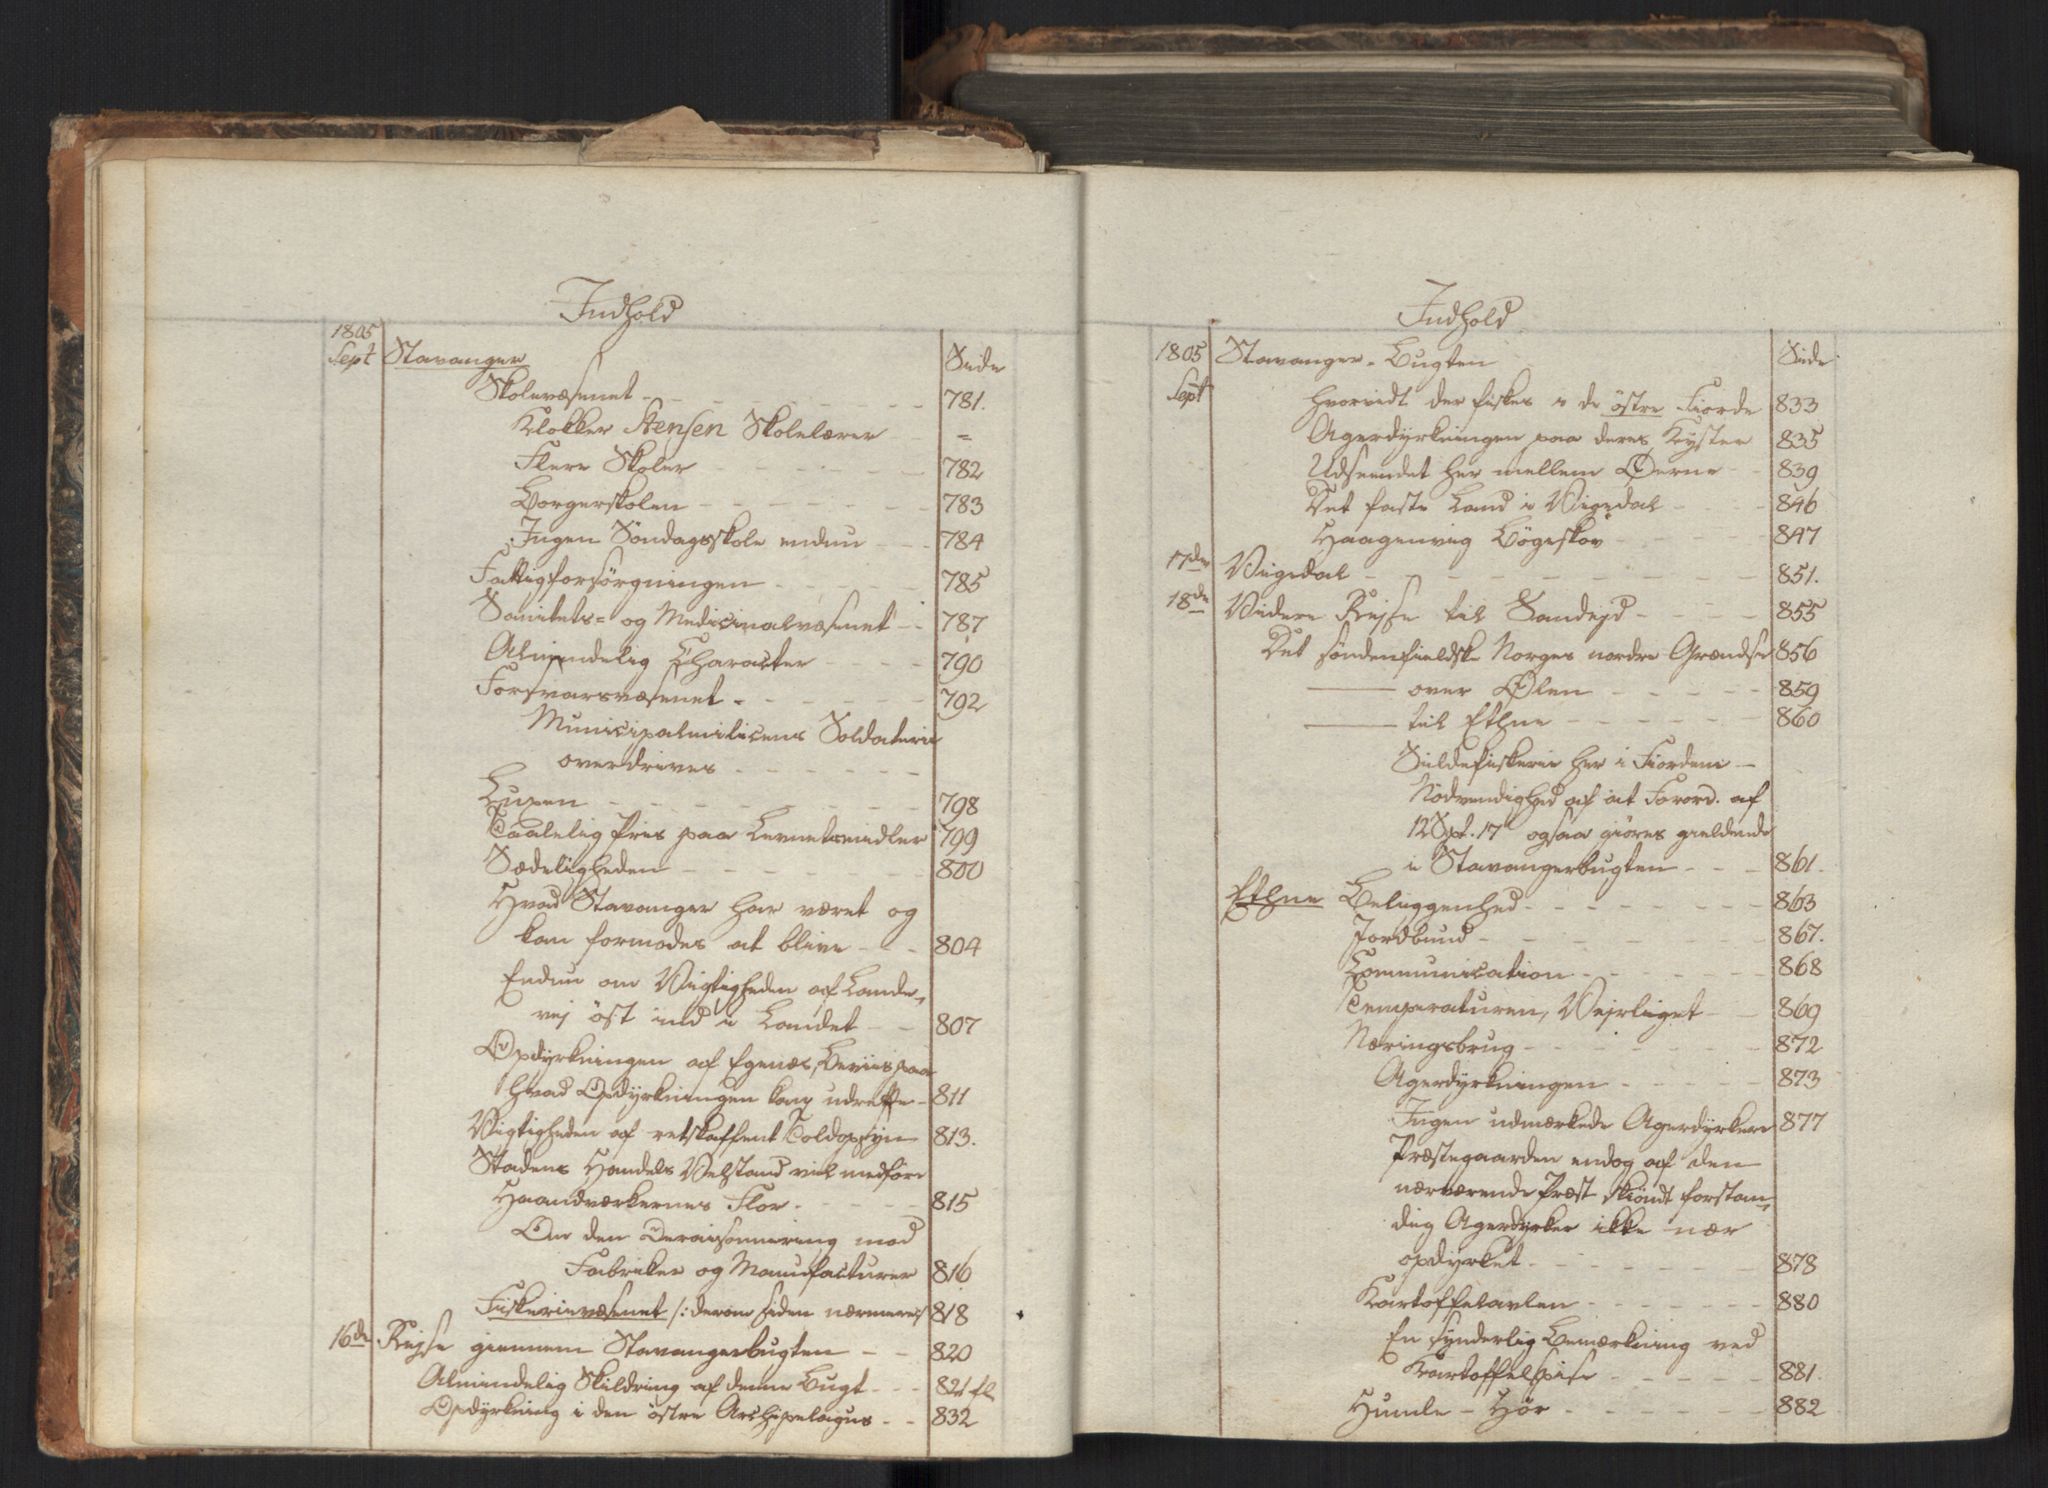 Indhold
1805
Sept Stavanger Side
Skolevæsenet 781.
Klokker Stensen Skolelærer =
Flere Skoler 782
Borgerskolen 783
Ingen Söndagsskole endnu 784
Fattigforsörgningen 785
Sanitets= og Medicinalvæsenet 787
Almindelig Character 790
Forsvarsvæsenet 792
Municipalmilicens Soldaterie
overdrives
Luxen 798
Taalelig Pris paa Levnetsmidler 799
Sædeligheden 800
Hvad Stavanger har været og
kan formodes at blive 804
Endnu om Vigtigheden af Lande-
vej öst ind i Landet 807
Opdyrkningen af Egenæs, Beviis paa
hvad Opdyrkningen kan udrette 811
Vigtigheden af retskaffent Toldopsyn 813.
Stadens Handels Velstand vil medföre
Haandværkernes Flor 815
Om den Deraisonnering mod
Fabriker og Manufacturer 816
Fiskerievæsenet /: derom siden nærmere :/ 818
16de Rejse giennem Stavangerbugten 820
Almindelig Skildring af denne Bugt 821 fl
Opdyrkning i den östre Archipelagus 832
Indhold
1805 Stavanger-Bugten Side
Sept hvorvidt der fiskes i de östre Fiorde 833
Agerdyrkningen paa deres Kyster 835
Udseendet her mellem Öerne 839
Det faste Land i Vigedal 846
Haagenvig Bögeskov 847
17de Vigedal 851.
18de Videre Rejse til Sandejd 855
Det söndenfieldske Norges nordre Grændse 856
over Ölen 859
til Ethne 860
Sildefiskerie her i Fiordene
Nödvendighed af at Forord. af
12 Spt. 17 ogsaa giöres gieldende
i Stavangerbugten 861.
Ethne Beliggenhed 863
Jordbund 867.
Communication 868
Temperaturen, Vejrliget 869
Næringsbrug 872
Agerdyrkningen 873
Ingen udmærkede Agerdyrkere 877
Præstegaarden endog af den
nærværende Præst skiöndt forstan-
dig Agerdyrker ikke nær
opdyrket 878
Kartoffelavlen 880
En synderlig Bemærkning ved
Kartoffelspise 881.
Humle - Hör 882